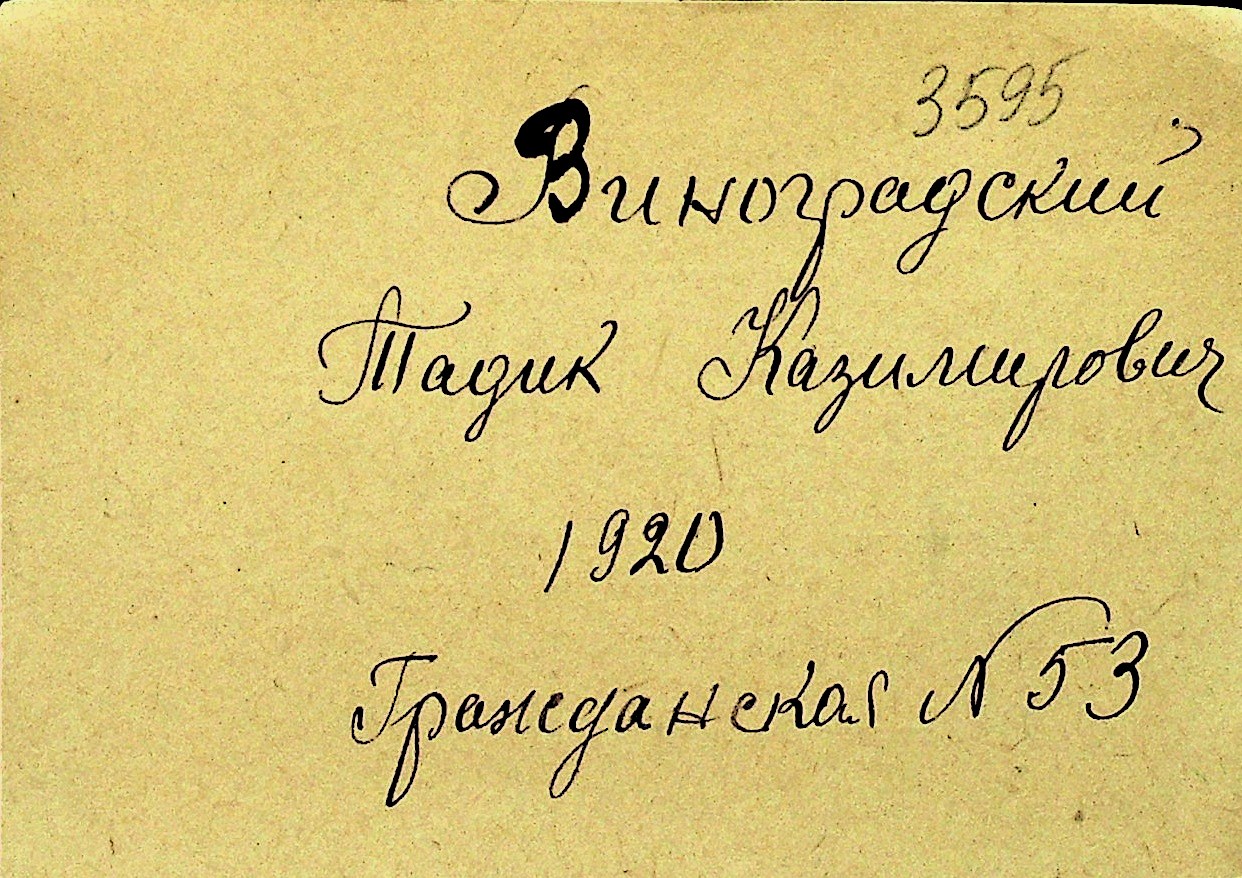 3595
Виноградский
Тадик Казимирович
1920
Гражданская N 53